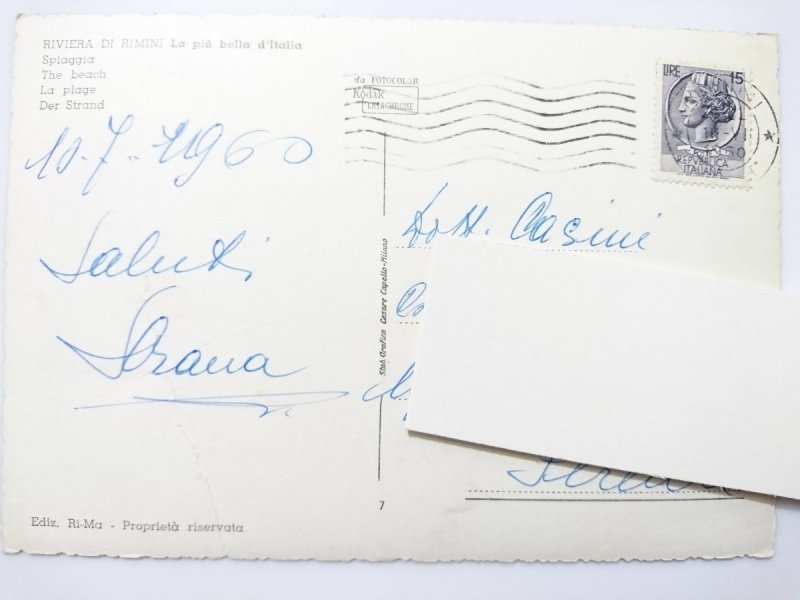 RIVIERA DI RIMINI La più bella d'Italia
Spiaggia
The beach
La plage
Der Strand
da FOTOCOLOR
Kodak
EKTACHROME
LIRE 15
REPVBBLICA
ITALIANA
10.7.1960
Saluti
Dott. Casini
Stab. Grafico Cesare Capello-Milano
7
Ediz. Ri-Ma - Proprietà riservata